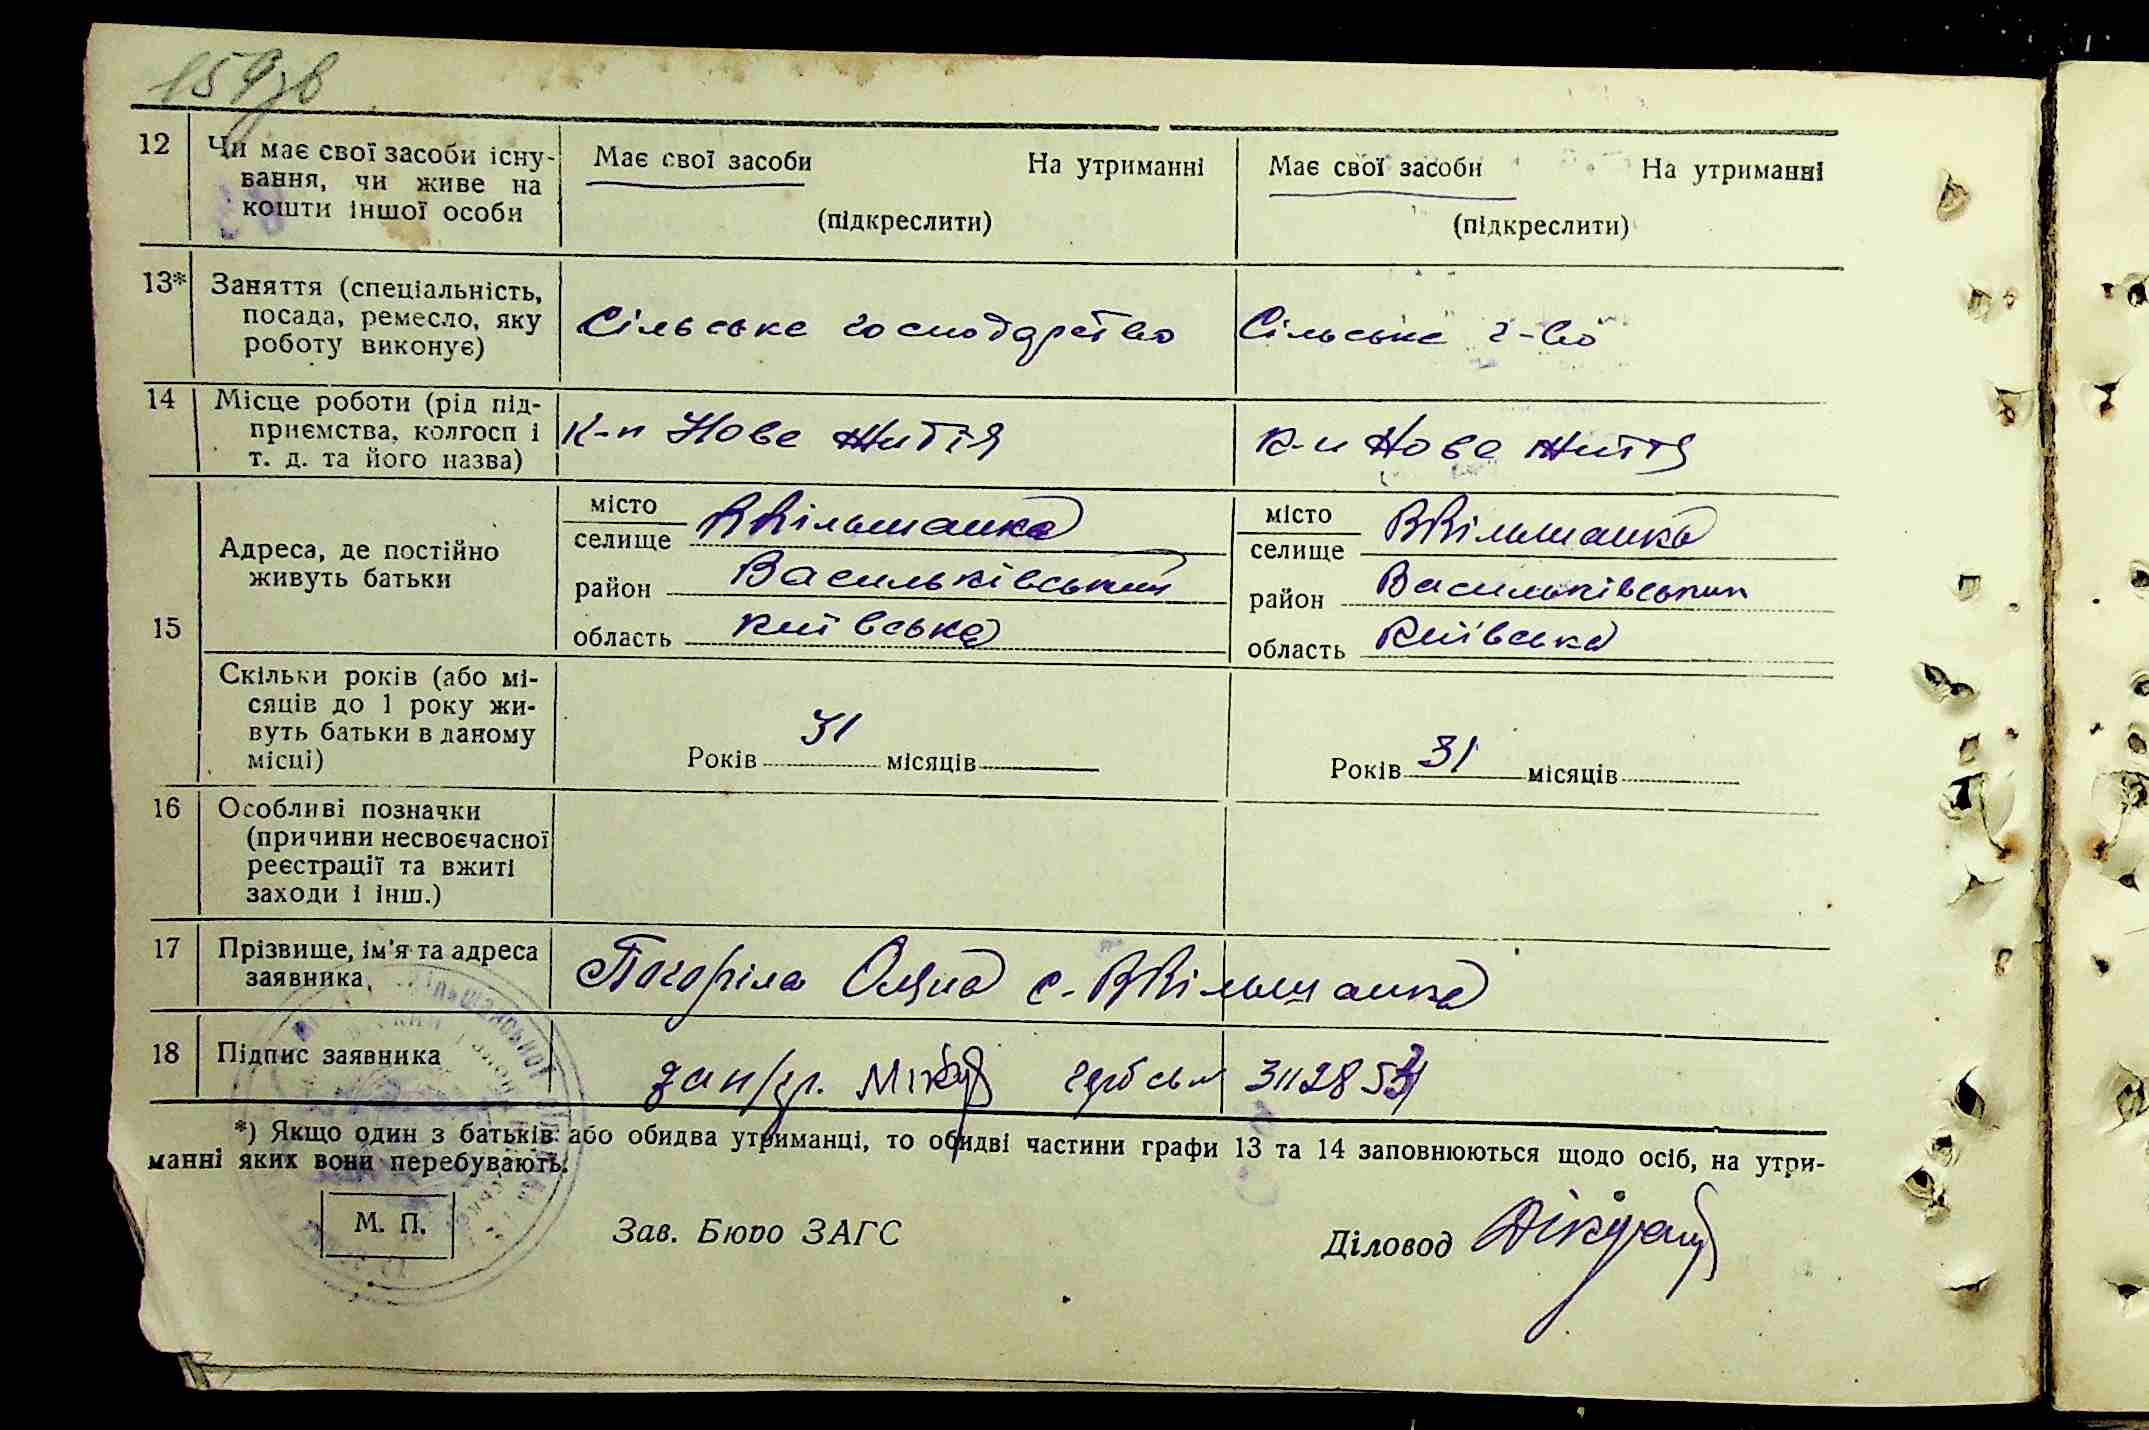 159зв
12 Чи має свої засоби існу- Має свої засоби На утриманні Має свої засоби На утриманні
вання, чи живе на
кошти іншої особи (підкреслити) (підкреслити)
13* Заняття (спеціальність,
посада, ремесло, яку Сільське господарство Сільське г-во
роботу виконує)
14 Місце роботи (рід під-
приємства, колгосп і К-п Нове Життя к-п Нове життя
т. д. та його назва)
місто місто
селище ВВільшанка селище ВВільшанка
Адреса, де постійно
живуть батьки район Васильківський район Васильківський
15 область київська область Київська
Скільки років (або мі-
сяців до 1 року жи-
вуть батьки в даному
місці) Років 31 місяців Років 31 місяців
16 Особливі позначки
(причини несвоєчасної
реєстрації та вжиті
заходи і інш.)
17 Прізвище, ім'я та адреса
заявника Погоріла Оляна с. ВВільшанка
18 Підпис заявника
*) Якщо один з батьків або обидва утриманці, то обидві частини графи 13 та 14 заповнюються щодо осіб, на утри-
манні яких вони перебувають.
М. П. Зав. Бюро ЗАГС Діловод